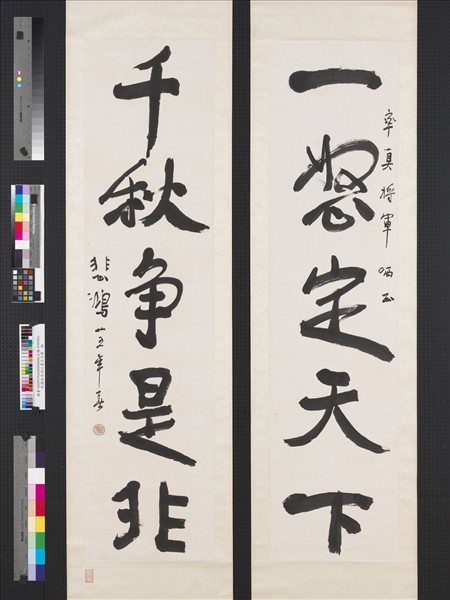 一怒定天下
率真将軍哂正
千秋争是非
悲鴻廿五年春